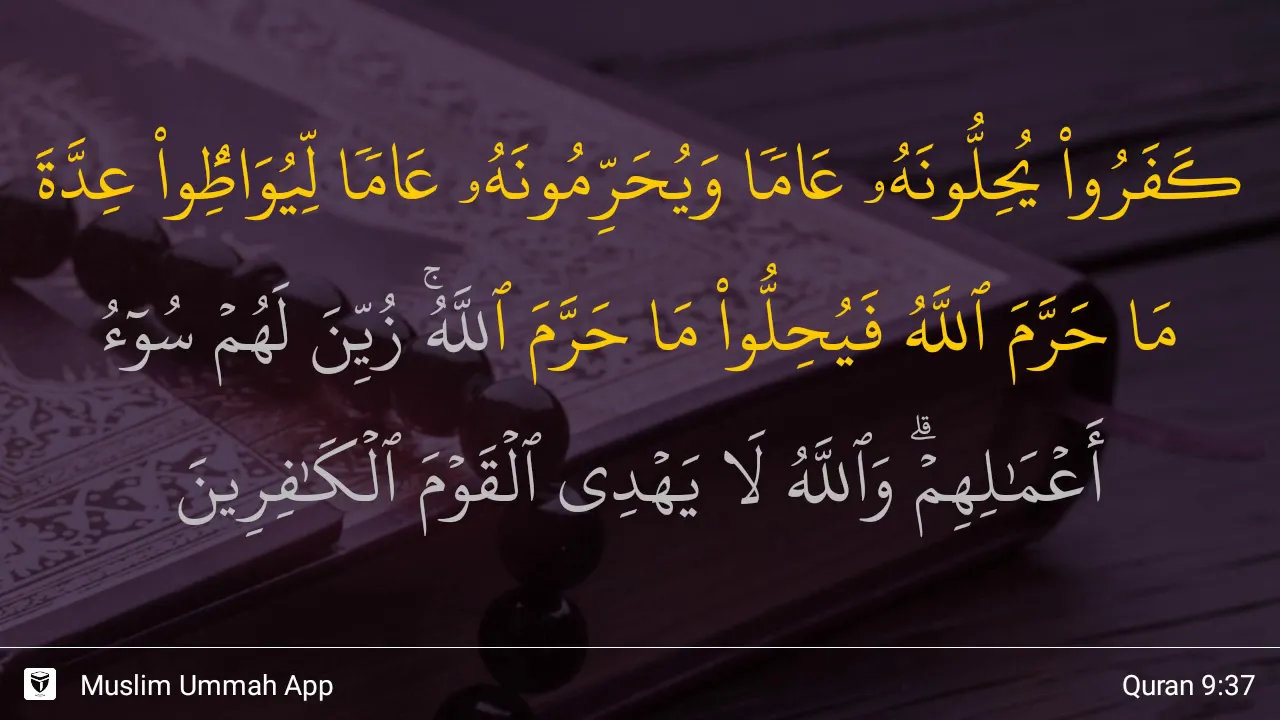 كَفَرُوا۟ يُحِلُّونَهُۥ عَامًۭا وَيُحَرِّمُونَهُۥ عَامًۭا لِّيُوَاطِـُٔوا۟ عِدَّةَ
مَا حَرَّمَ ٱللَّهُ فَيُحِلُّوا۟ مَا حَرَّمَ ٱللَّهُ ۚ زُيِّنَ لَهُمْ سُوٓءُ
أَعْمَـٰلِهِمْ ۗ وَٱللَّهُ لَا يَهْدِى ٱلْقَوْمَ ٱلْكَـٰفِرِينَ
Muslim Ummah App Quran 9:37